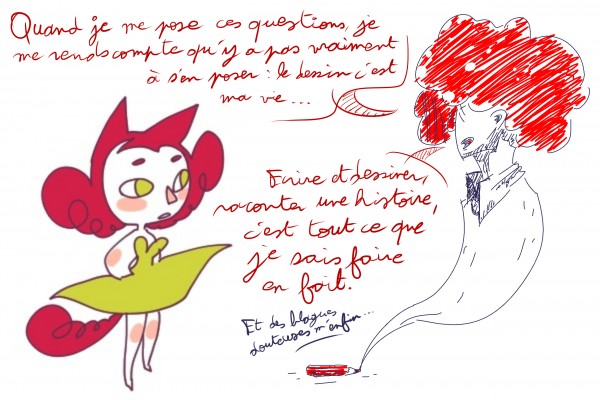 Quand je me pose ces questions, je
me rends compte qu'y a pas vraiment
à s'en poser : le dessin c'est
ma vie...
Ecrire et dessiner,
raconter une histoire,
c'est tout ce que
je sais faire
en fait.
Et des blagues
douteuses m'enfin...